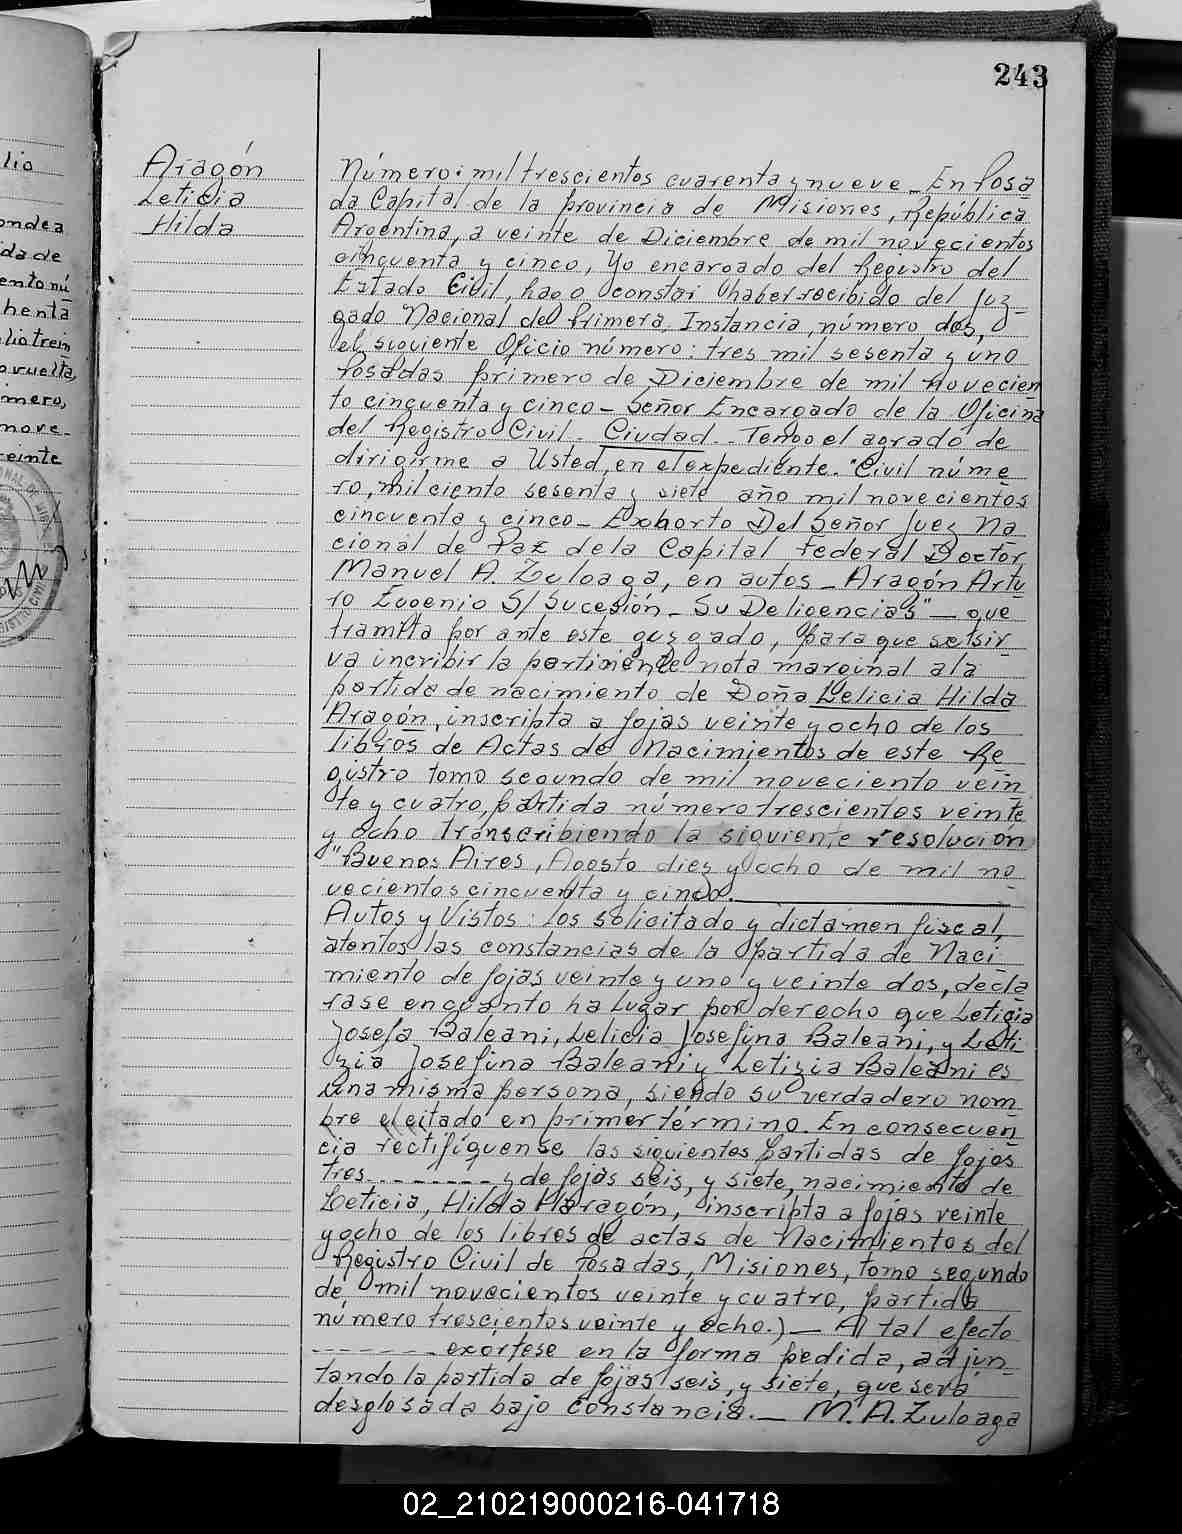 243
lio
onde a
da de
ento nú
henta
lio trein
vuelta,
mero,
nove-
einte
Aragón
Leticia
Hilda
Número: mil trescientos cuarenta y nueve - En Posa
da Capital de la provincia de Misiones, República
Argentina, a veinte de Diciembre de mil novecientos
cincuenta y cinco, Yo encargado del Registro del
Estado Civil, hago constar haber recibido del Juz-
gado Nacional de Primera Instancia, número dos,
el siguiente Oficio número: tres mil sesenta y uno
Posadas primero de Diciembre de mil novecien
to cincuenta y cinco - Señor Encargado de la Oficina
del Registro Civil - Ciudad -. Tengo el agrado de
dirigirme a Usted, en el expediente. "Civil núme
ro, mil ciento sesenta y siete año mil novecientos
cincuenta y cinco - Exhorto Del Señor Juez Na
cional de Paz de la Capital Federal Doctor
Manuel A. Zuloaga, en autos - Aragón Artu
ro Eugenio S/ Sucesión - Su Deligencias" - que
tramita por ante este guzgado, para que se sir
va incribir la pertinente nota marginal a la
partida de nacimiento de Doña Leticia Hilda
Aragón, inscripta a fojas veinte y ocho de los
libros de Actas de Nacimientos de este Re
gistro tomo segundo de mil noveciento vein
te y cuatro, partida número trescientos veinte
y ocho transcribiendo la siguiente resolución
"Buenos Aires, Agosto diez y ocho de mil no
vecientos cincuenta y cinco.
Autos y Vistos: los solicitado y dictamen fiscal,
atentos las constancias de la partida de Naci
miento de fojas veinte y uno y veinte dos, decla
rase en cuanto ha lugar por derecho que Leticia
Josefa Baleani, Leticia Josefina Baleani, y Leti
zia Josefina Baleani y Letizia Baleani es
una misma persona, siendo su verdadero nom
bre el citado en primer término. En consecuen
cia rectifíquense las siguientes partidas de fojas
tres -------- y de fojas seis, y siete, nacimiento de
Leticia, Hilda Haragón, inscripta a fojas veinte
y ocho de los libros de actas de Nacimientos del
Registro Civil de Posadas, Misiones, tomo segundo
de mil novecientos veinte y cuatro, partida
número trescientos veinte y ocho.) - Al tal efecto
------- exortese en la forma pedida, adjun-
tando la partida de fojas seis, y siete, que será
desglosada bajo constancia. - M. A. Zuloaga
02_210219000216-041718